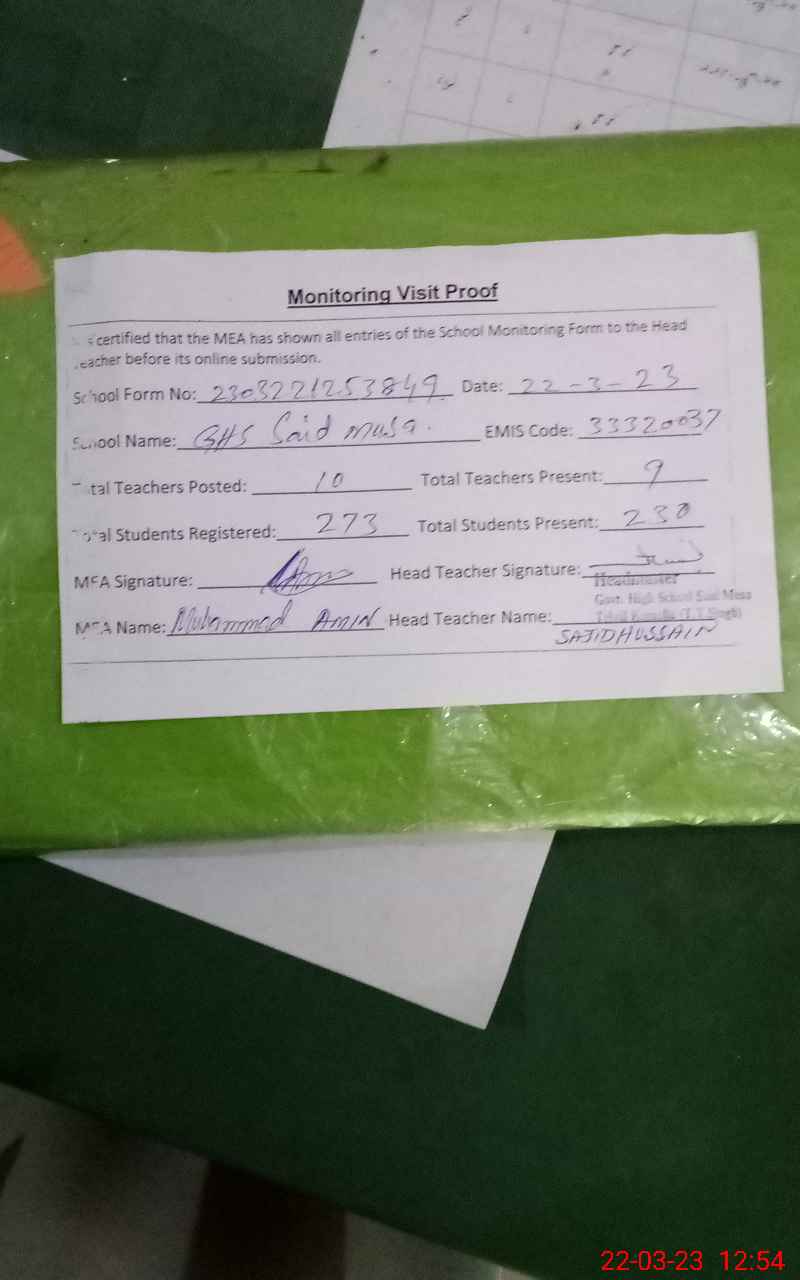 Monitoring Visit Proof
certified that the MEA has shown all entries of the School Monitoring Form to the Head
eacher before its online submission.
School Form No: 2303221253849 Date: 22-3-23
School Name: GHS Said musa. EMIS Code: 33320037
tal Teachers Posted: 10 Total Teachers Present: 9
al Students Registered: 273 Total Students Present: 230
MEA Signature: Head Teacher Signature:
Headmaster
Govt. High School Said Musa
MEA Name: Muhammad AMIN Head Teacher Name:
SAJID HUSSAIN
22-03-23 12:54